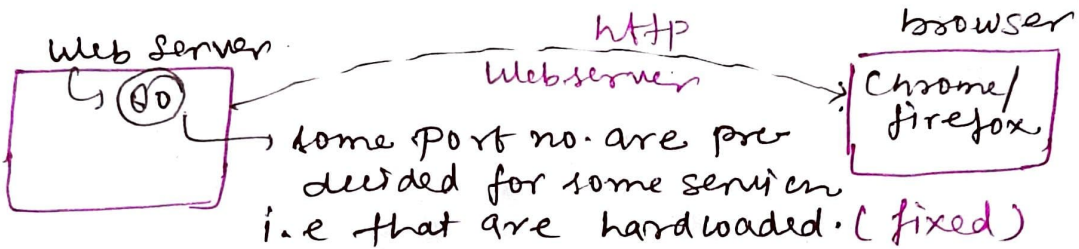 Web Server
80
http
Webserver
browser
Chrome/
firefox
some port no. are pre
decided for some services
i.e that are hardloaded. (fixed)